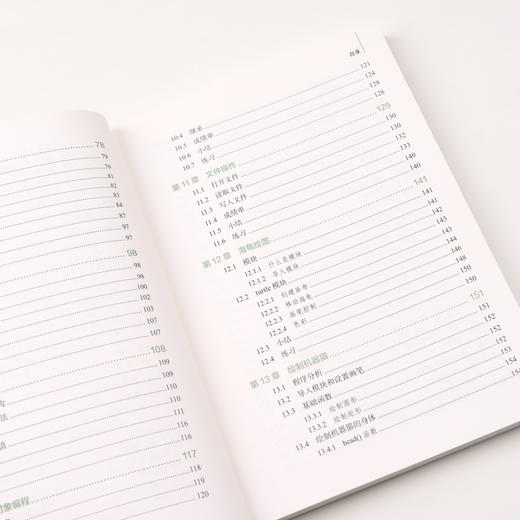 目录
10.4 继承 121
10.5 成绩单 124
10.6 小结 128
10.7 练习 128
第 11 章 文件操作 129
11.1 打开文件 130
11.2 读取文件
11.3 写入文件
11.4 成绩单
11.5 小结 140
11.6 练习 140
第 12 章 海龟绘图 141
12.1 模块 141
12.1.1 什么是模块
12.1.2 导入模块
12.2 turtle 模块
12.2.1 创建画布
12.2.2 移动海龟
12.2.3 画笔控制
12.2.4 色彩
12.3 小结 150
12.4 练习 150
第 13 章 绘制机器猫 151
13.1 程序分析 151
13.2 导入模块和设置画笔 152
13.3 基础函数 152
13.3.1 绘制圆形
13.3.2 绘制矩形
13.4 绘制机器猫的身体 154
13.4.1 head() 函数 154
78
79
79
82
83
84
87
97
98
98
98
100
104
107
107
108
109
109
110
111
116
116
117
118
对象编程 120